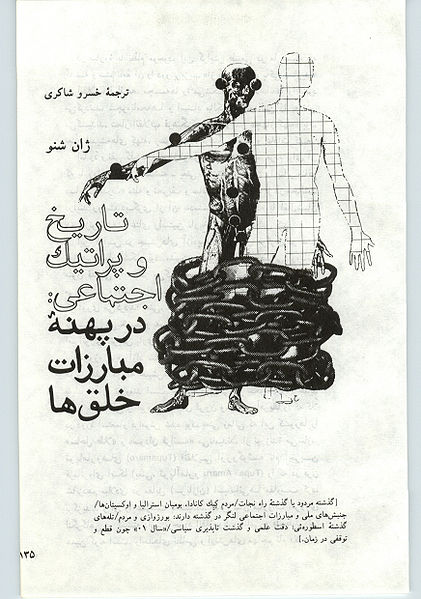 ترجمهٔ خسرو شاکری
ژان شنو
تاریخ
و پراتیك
اجتماعی:
در پهنهٔ
مبارزات
خلق‌ها
[گذشته مردود یا گذشتهٔ راه نجات/مردم کبك کانادا، بومیان استرالیا و اوکسیتان‌ها/
جنبش‌های ملی و مبارزات اجتماعی لنگر در گذشته دارند: بورژوازی و مردم/تله‌های
گذشتهٔ اسطوره‌ئی: دقت علمی و گذشت ناپذیری سیاسی/«سال ۰۱» چون قطع و
توقفی در زمان.]
۱۳۵